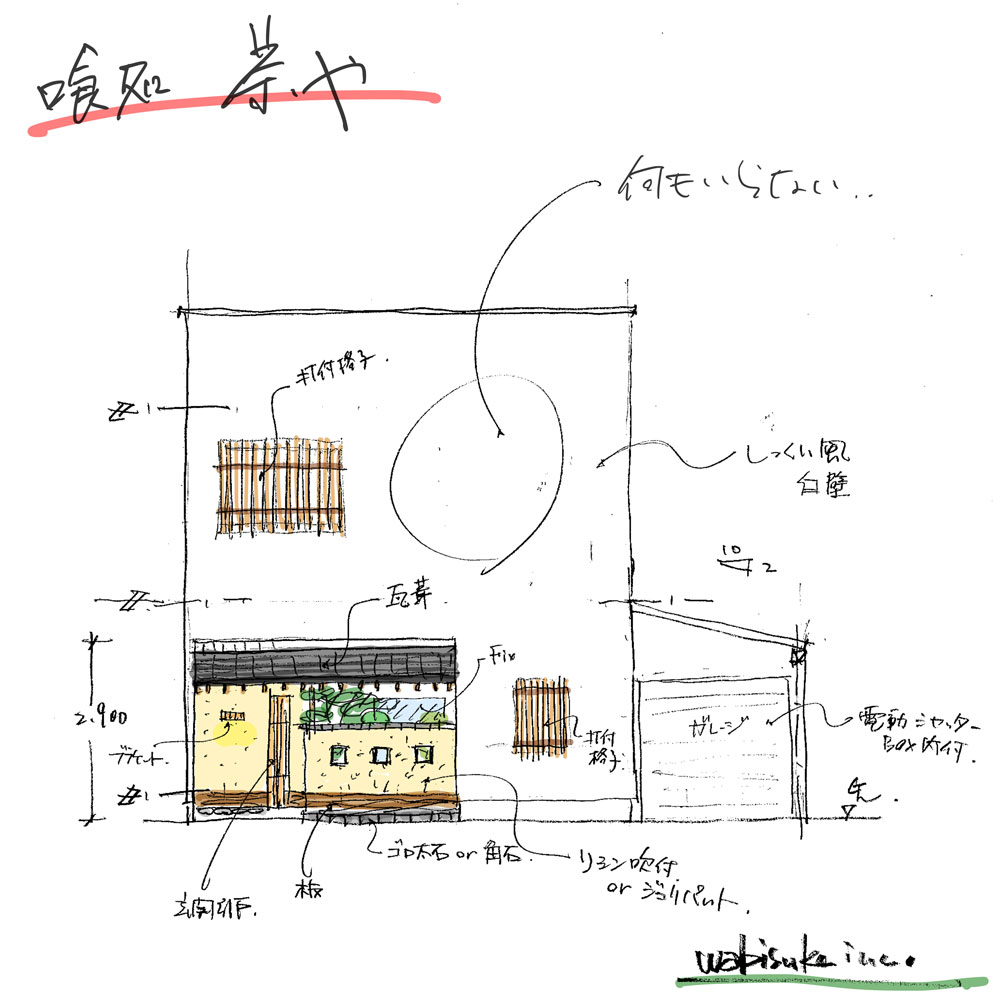 喰処 菜や
何もいらない..
打付格子.
しっくい風
白壁
10
2
瓦葺
Fix
2,900
ブラケット.
打付
格子.
ガレージ
電動シャッター
BOX内付.
GL.
ゴロ太石 or 角石.
リシン吹付
or ジョリパット.
板
玄関引戸.
wabisuke inc.